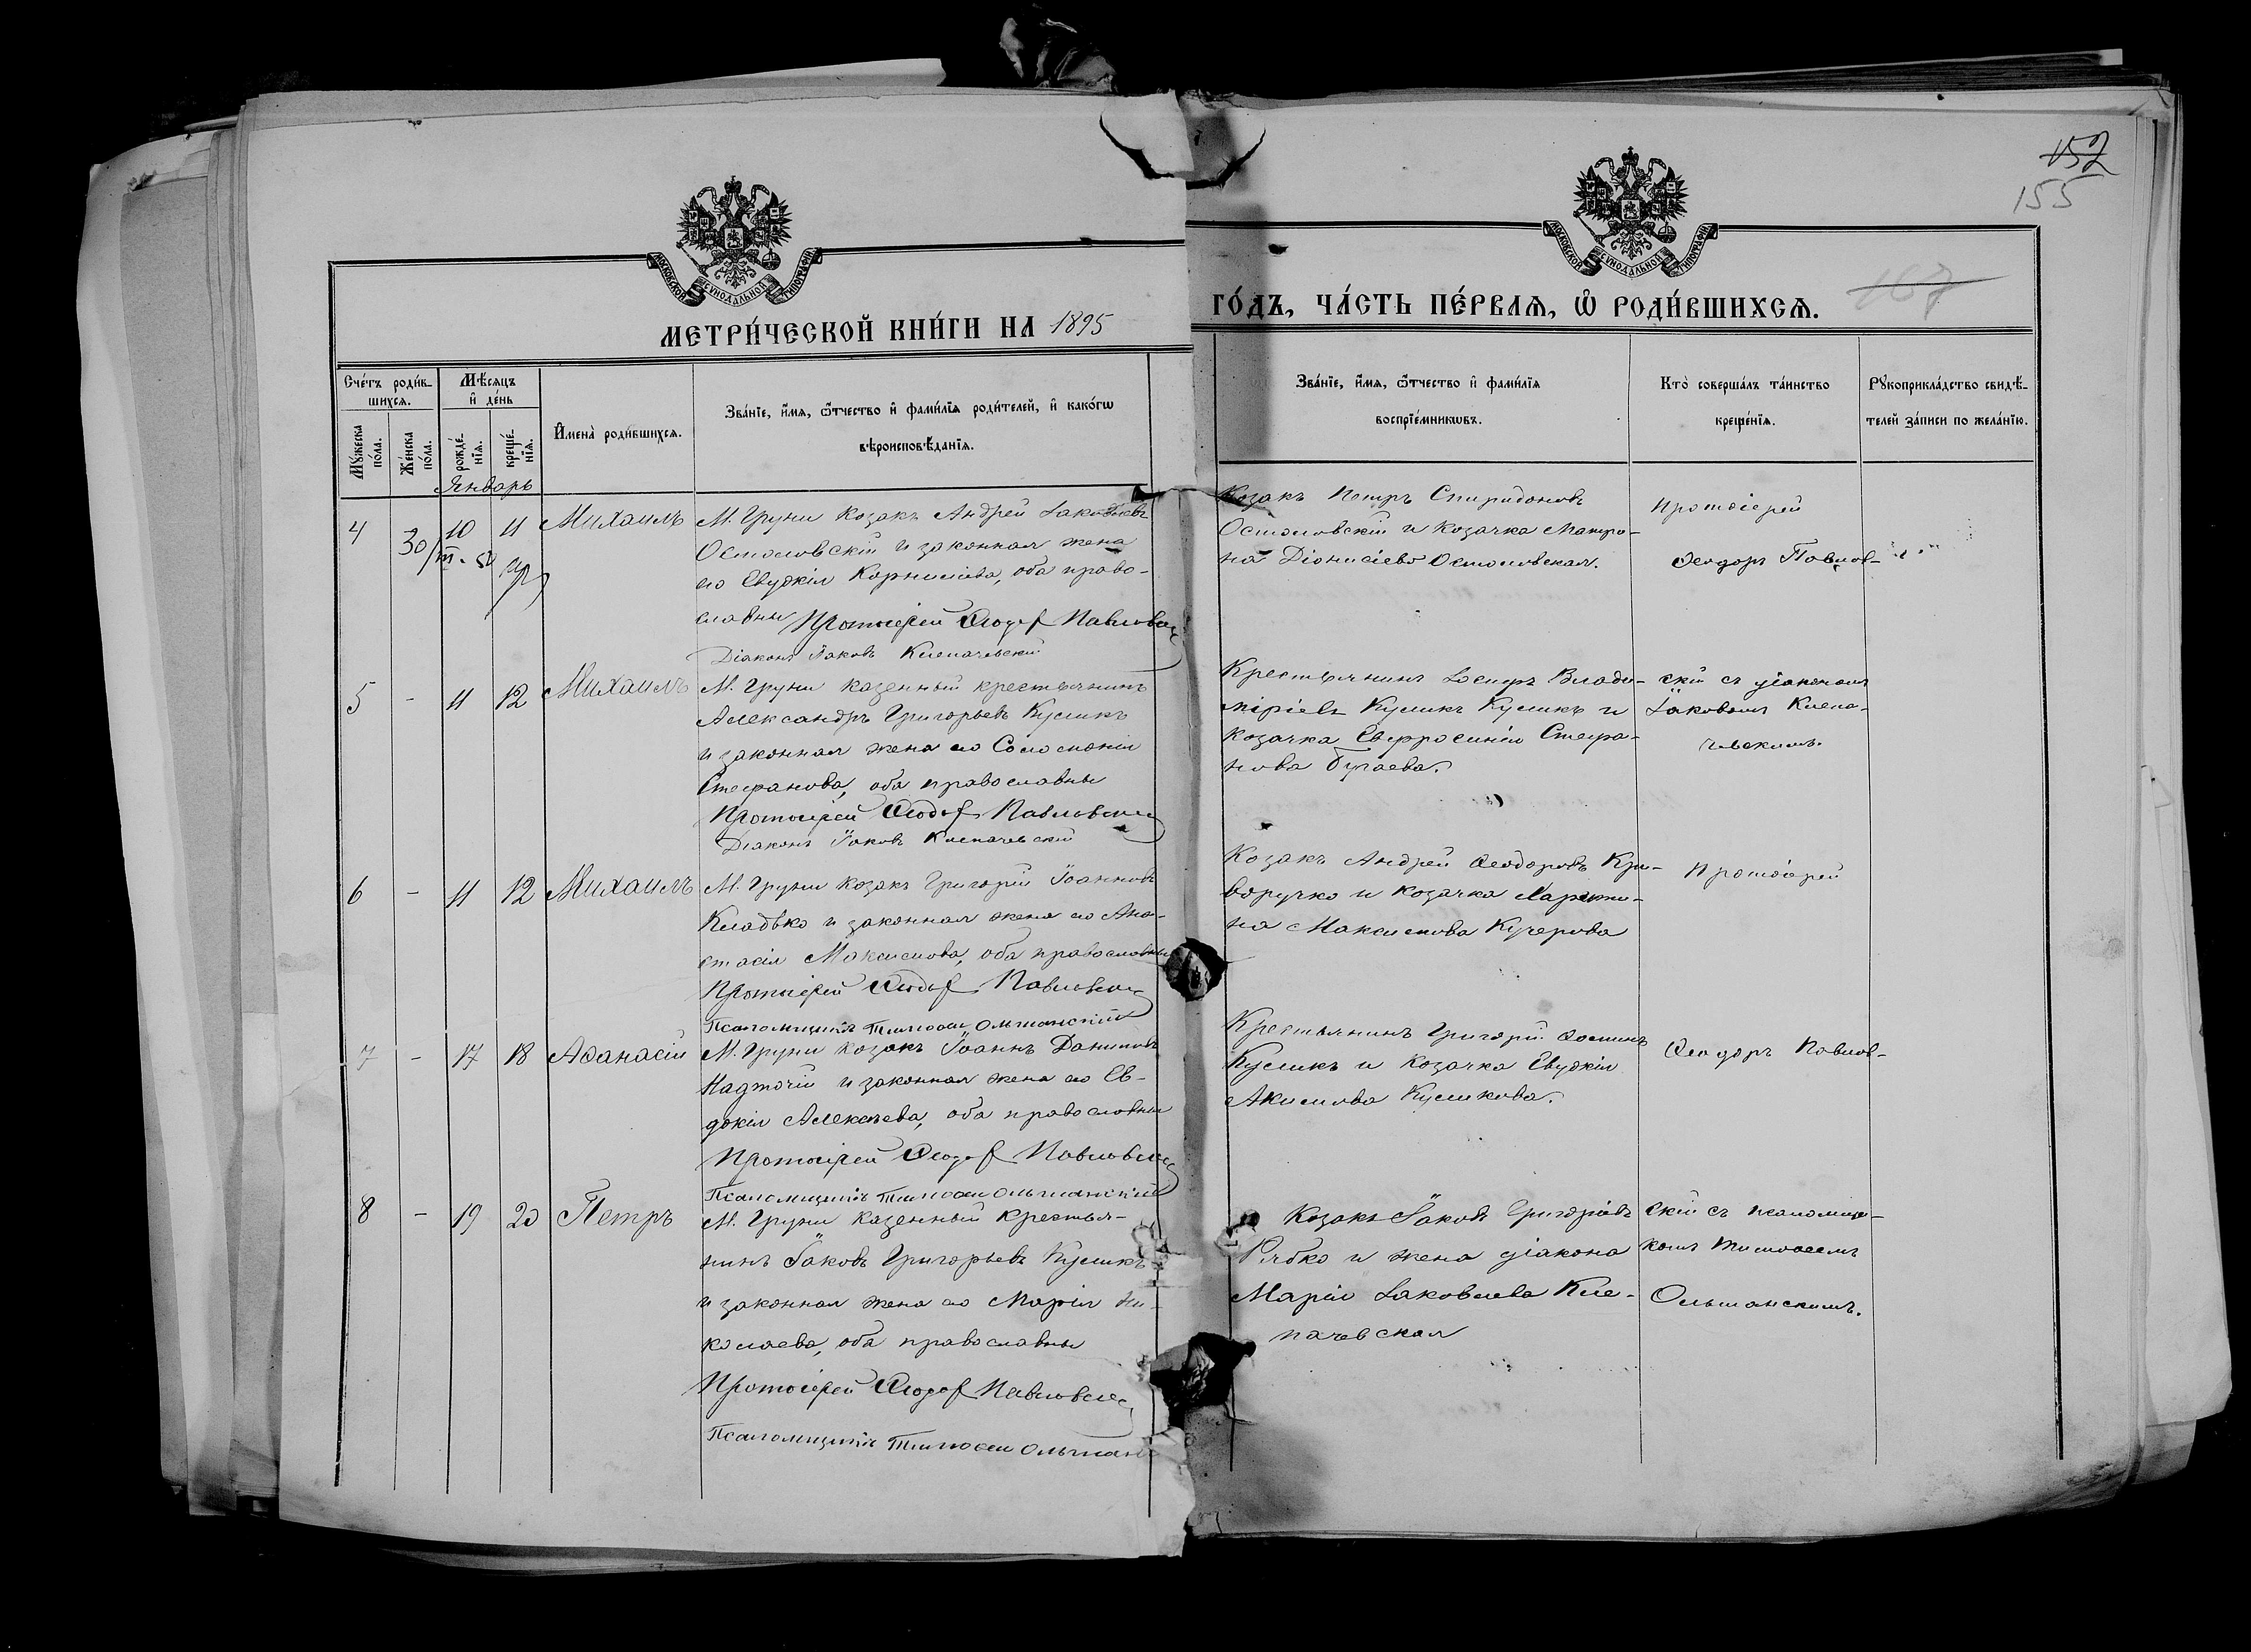 152
155
167
МОСКОВСКОЙ СѴНОДАЛЬНОЙ ТИПОГРАФІИ
МОСКОВСКОЙ СѴНОДАЛЬНОЙ ТИПОГРАФІИ
МЕТРИ́ЧЕСКОЙ КНИ́ГИ НА 1895
ГО́ДЪ, ЧА́СТЬ ПЕ́РВАЯ, Ѡ РОДИ́ВШИХСЯ.
Сче́тъ роди́в-
шихся.
Мѣ́сяцъ
и҆ де́нь
Му́жеска
по́ла.
Же́нска
по́ла.
рожде́-
нїя.
креще́-
нїя.
И҆мена̀ роди́вшихся.
Зва́нїе, и҆́мя, ѻ҆́тчество и҆ фами́лїя роди́телей, и҆ како́гѡ
вѣроисповѣ́данїя.
Зва́нїе, и҆́мя, ѻ҆́тчество и҆ фами́лїя
воспрїе́мникѡвъ.
Кто̀ соверша́лъ та́инство
креще́нїя.
Рꙋкоприкла́дство свидѣ́-
телей за́писи по жела́нїю.
Январь
4
30/
10
11
Михаилъ
М. Груни козакъ Андрей Іаковлевъ
Остословскій и законная жена
его Евдокія Корнилiева, оба право-
славны Протоіерей Ѳеодор Павловскій
Діаконъ Іаковъ Клепачевскій
Козакъ Петръ Спиридоновъ
Остословскій и козачка Матро-
на Діонисіева Остословская.
Протоіерей
Ѳеодоръ Павлов-
5 - 11 12 Михаилъ
М. Груни казенный крестьянинъ
Александръ Григорьевъ Куликъ
и законная жена его Соломонія
Стефанова, оба православны
Протоіерей Ѳеодор Павловскій
Діаконъ Іаковъ Клепачевскій
Крестьянинъ Іосифъ Влади-
міріевъ Куликъ Куликъ и
козачка Евфросинія Стефа-
нова Бугаева.
скій съ діакономъ
Іаковомъ Клепа-
чевскимъ.
6 - 11 12 Михаилъ
М. Груни козакъ Григорій Іоанновъ
Кладько и законная жена его Ана-
стасія Максимова, оба православны
Протоіерей Ѳеодор Павловскій
Псаломщикъ Тимоѳей Ольшанскій
Козакъ Андрей Ѳеодоровъ Кри-
воручко и козачка
на Максимова Кучерова
Протоіерей
7 - 17 18 Аѳанасій
М. Груни козакъ Іоаннъ Даниловъ
Надточій и законная жена его Ев-
докія Алексѣева, оба православны
Протоіерей Ѳеодор Павловскій
Псаломщикъ Тимоѳей Ольшанскій
Крестьянинъ Григорій Ѳоминъ
Куликъ и козачка Евдокія
Акимова Куликова.
Ѳеодоръ Павлов-
8 - 19 20 Петръ
М. Груни казенный крестья-
нинъ Іаковъ Григорьевъ Куликъ
и законная жена его Марія Ни-
колаева, оба православны
Протоіерей Ѳеодор Павловскій
Псаломщикъ Тимоѳей Ольшан
Козакъ Іаковъ Григоріевъ
Рябко и жена діакона
Марія Іаковлева Кле-
пачевская
скій съ псаломщи-
комъ Тимоѳеемъ
Ольшанскимъ.